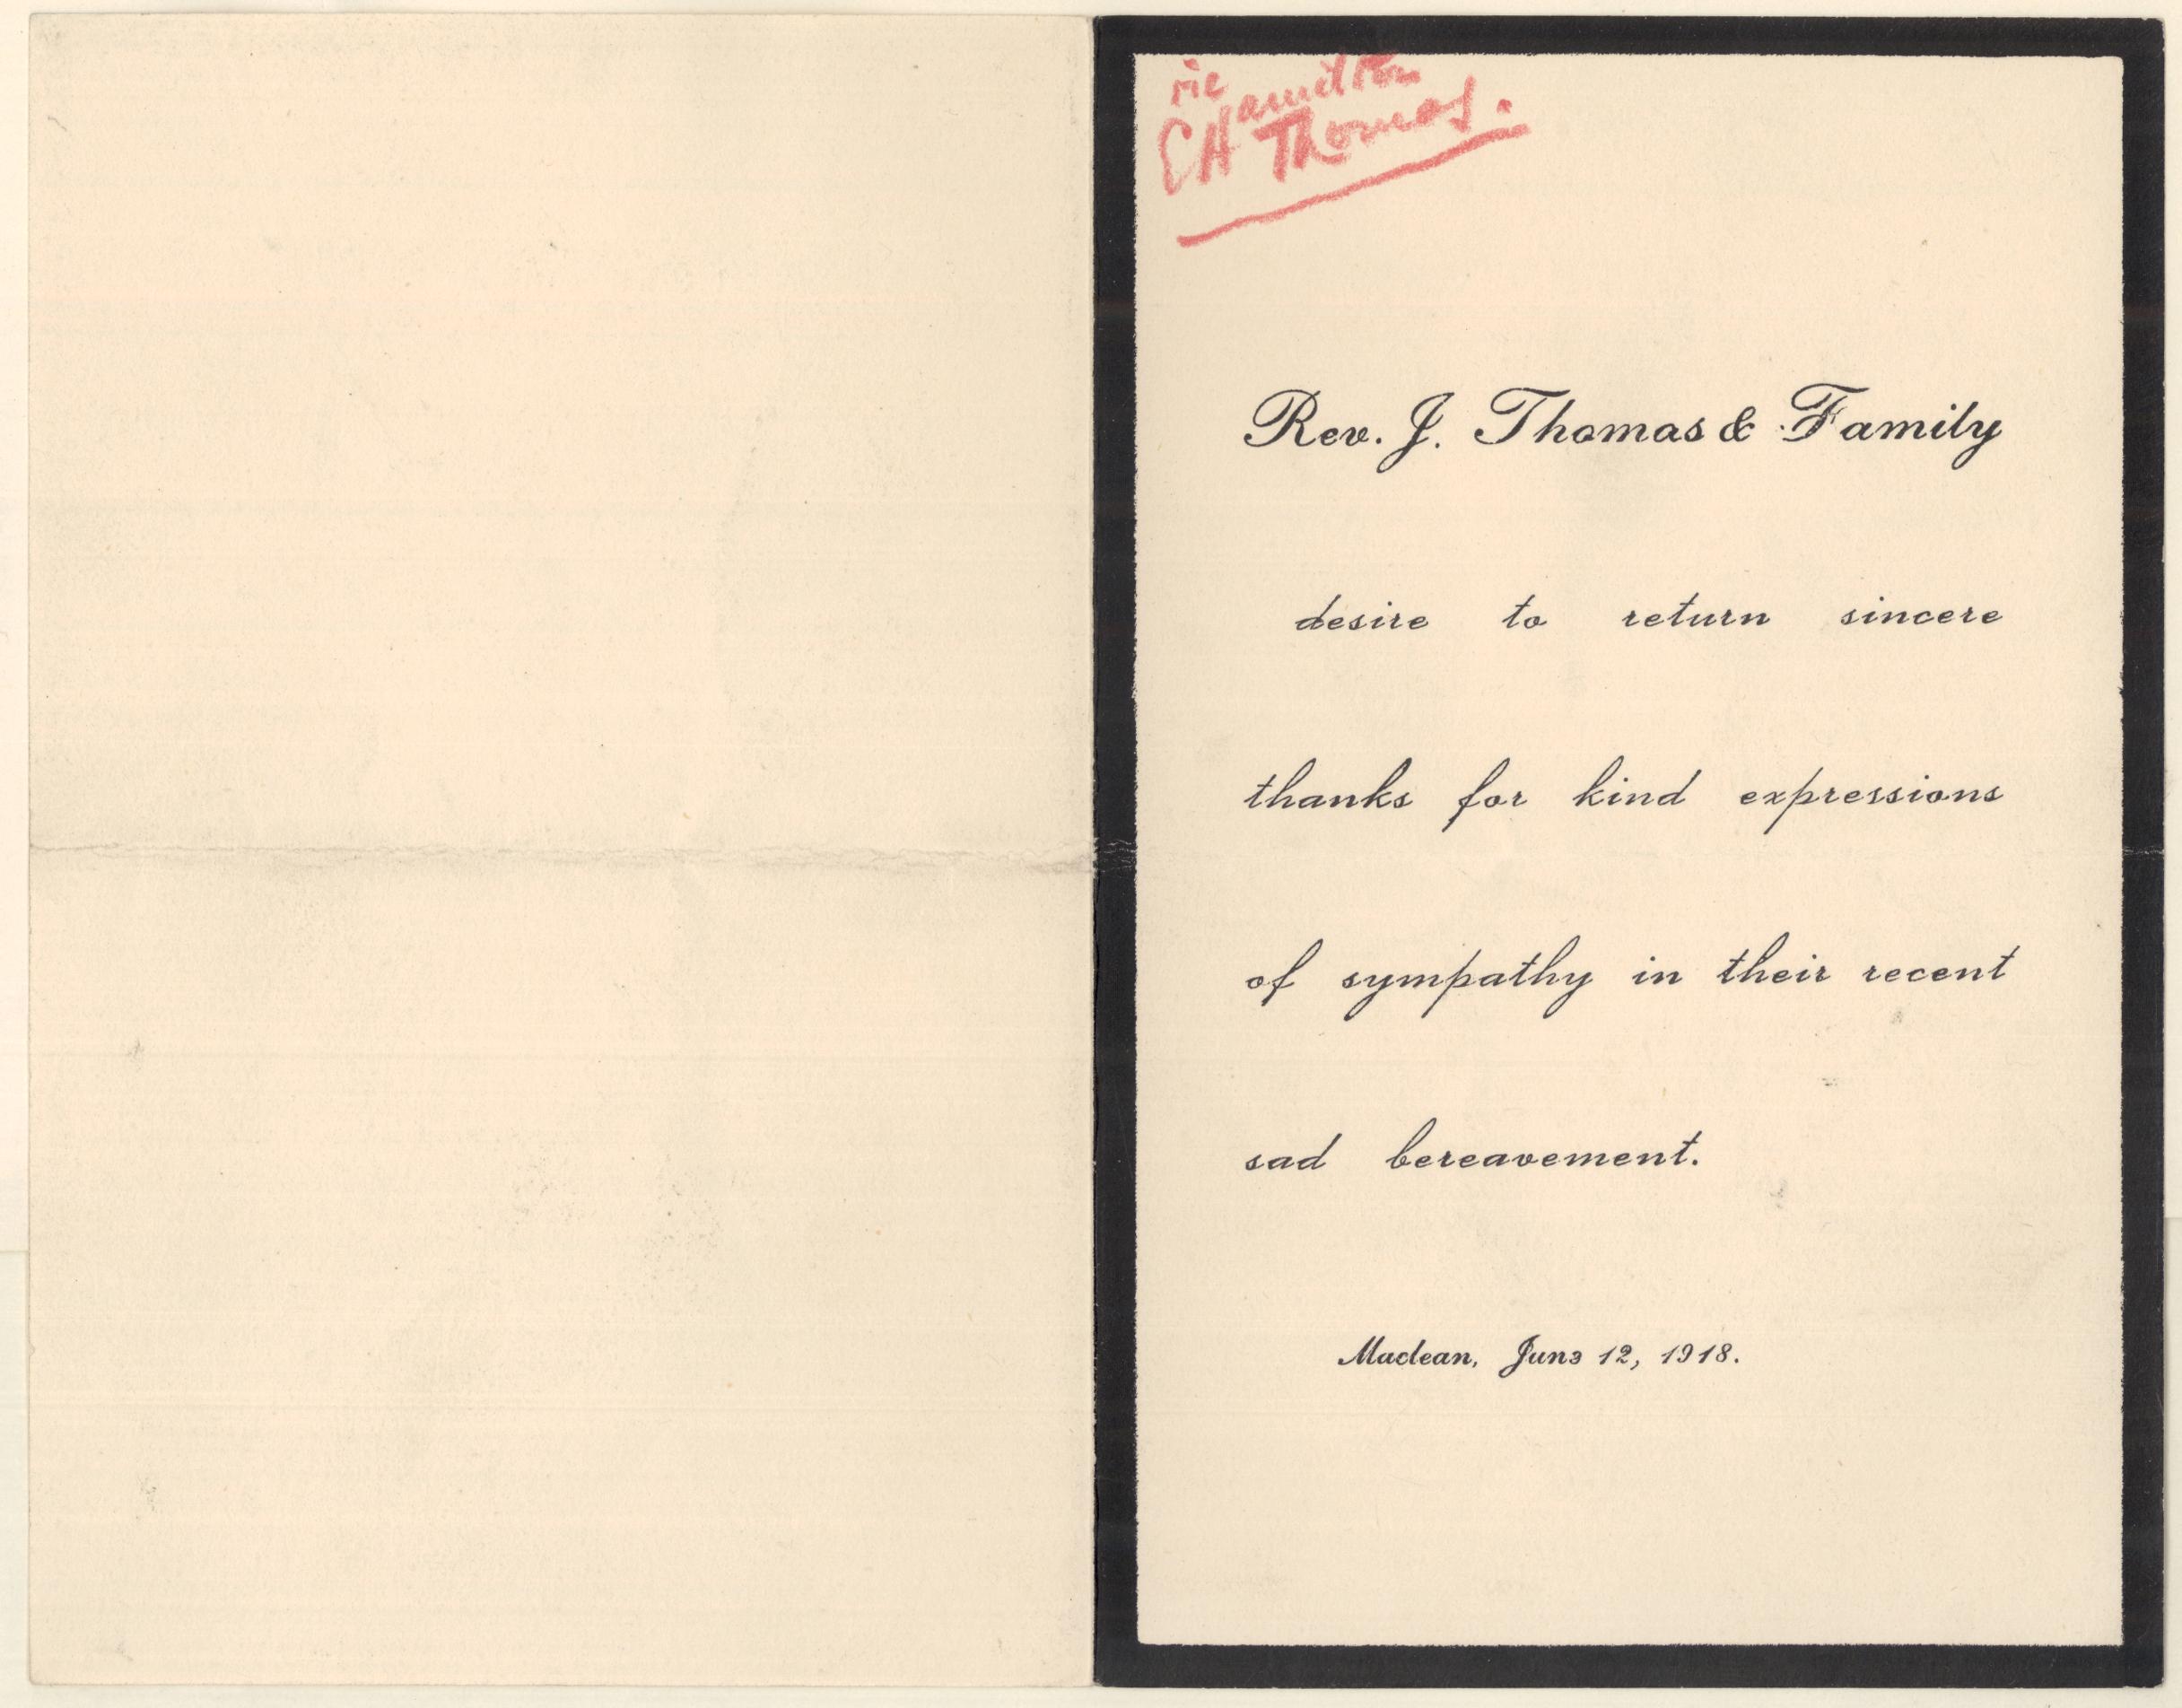 ric
amilton
EH Thomas.
Rev. J. Thomas & Family
desire to return sincere
thanks for kind expressions
of sympathy in their recent
sad bereavement.
Maclean, June 12, 1918.